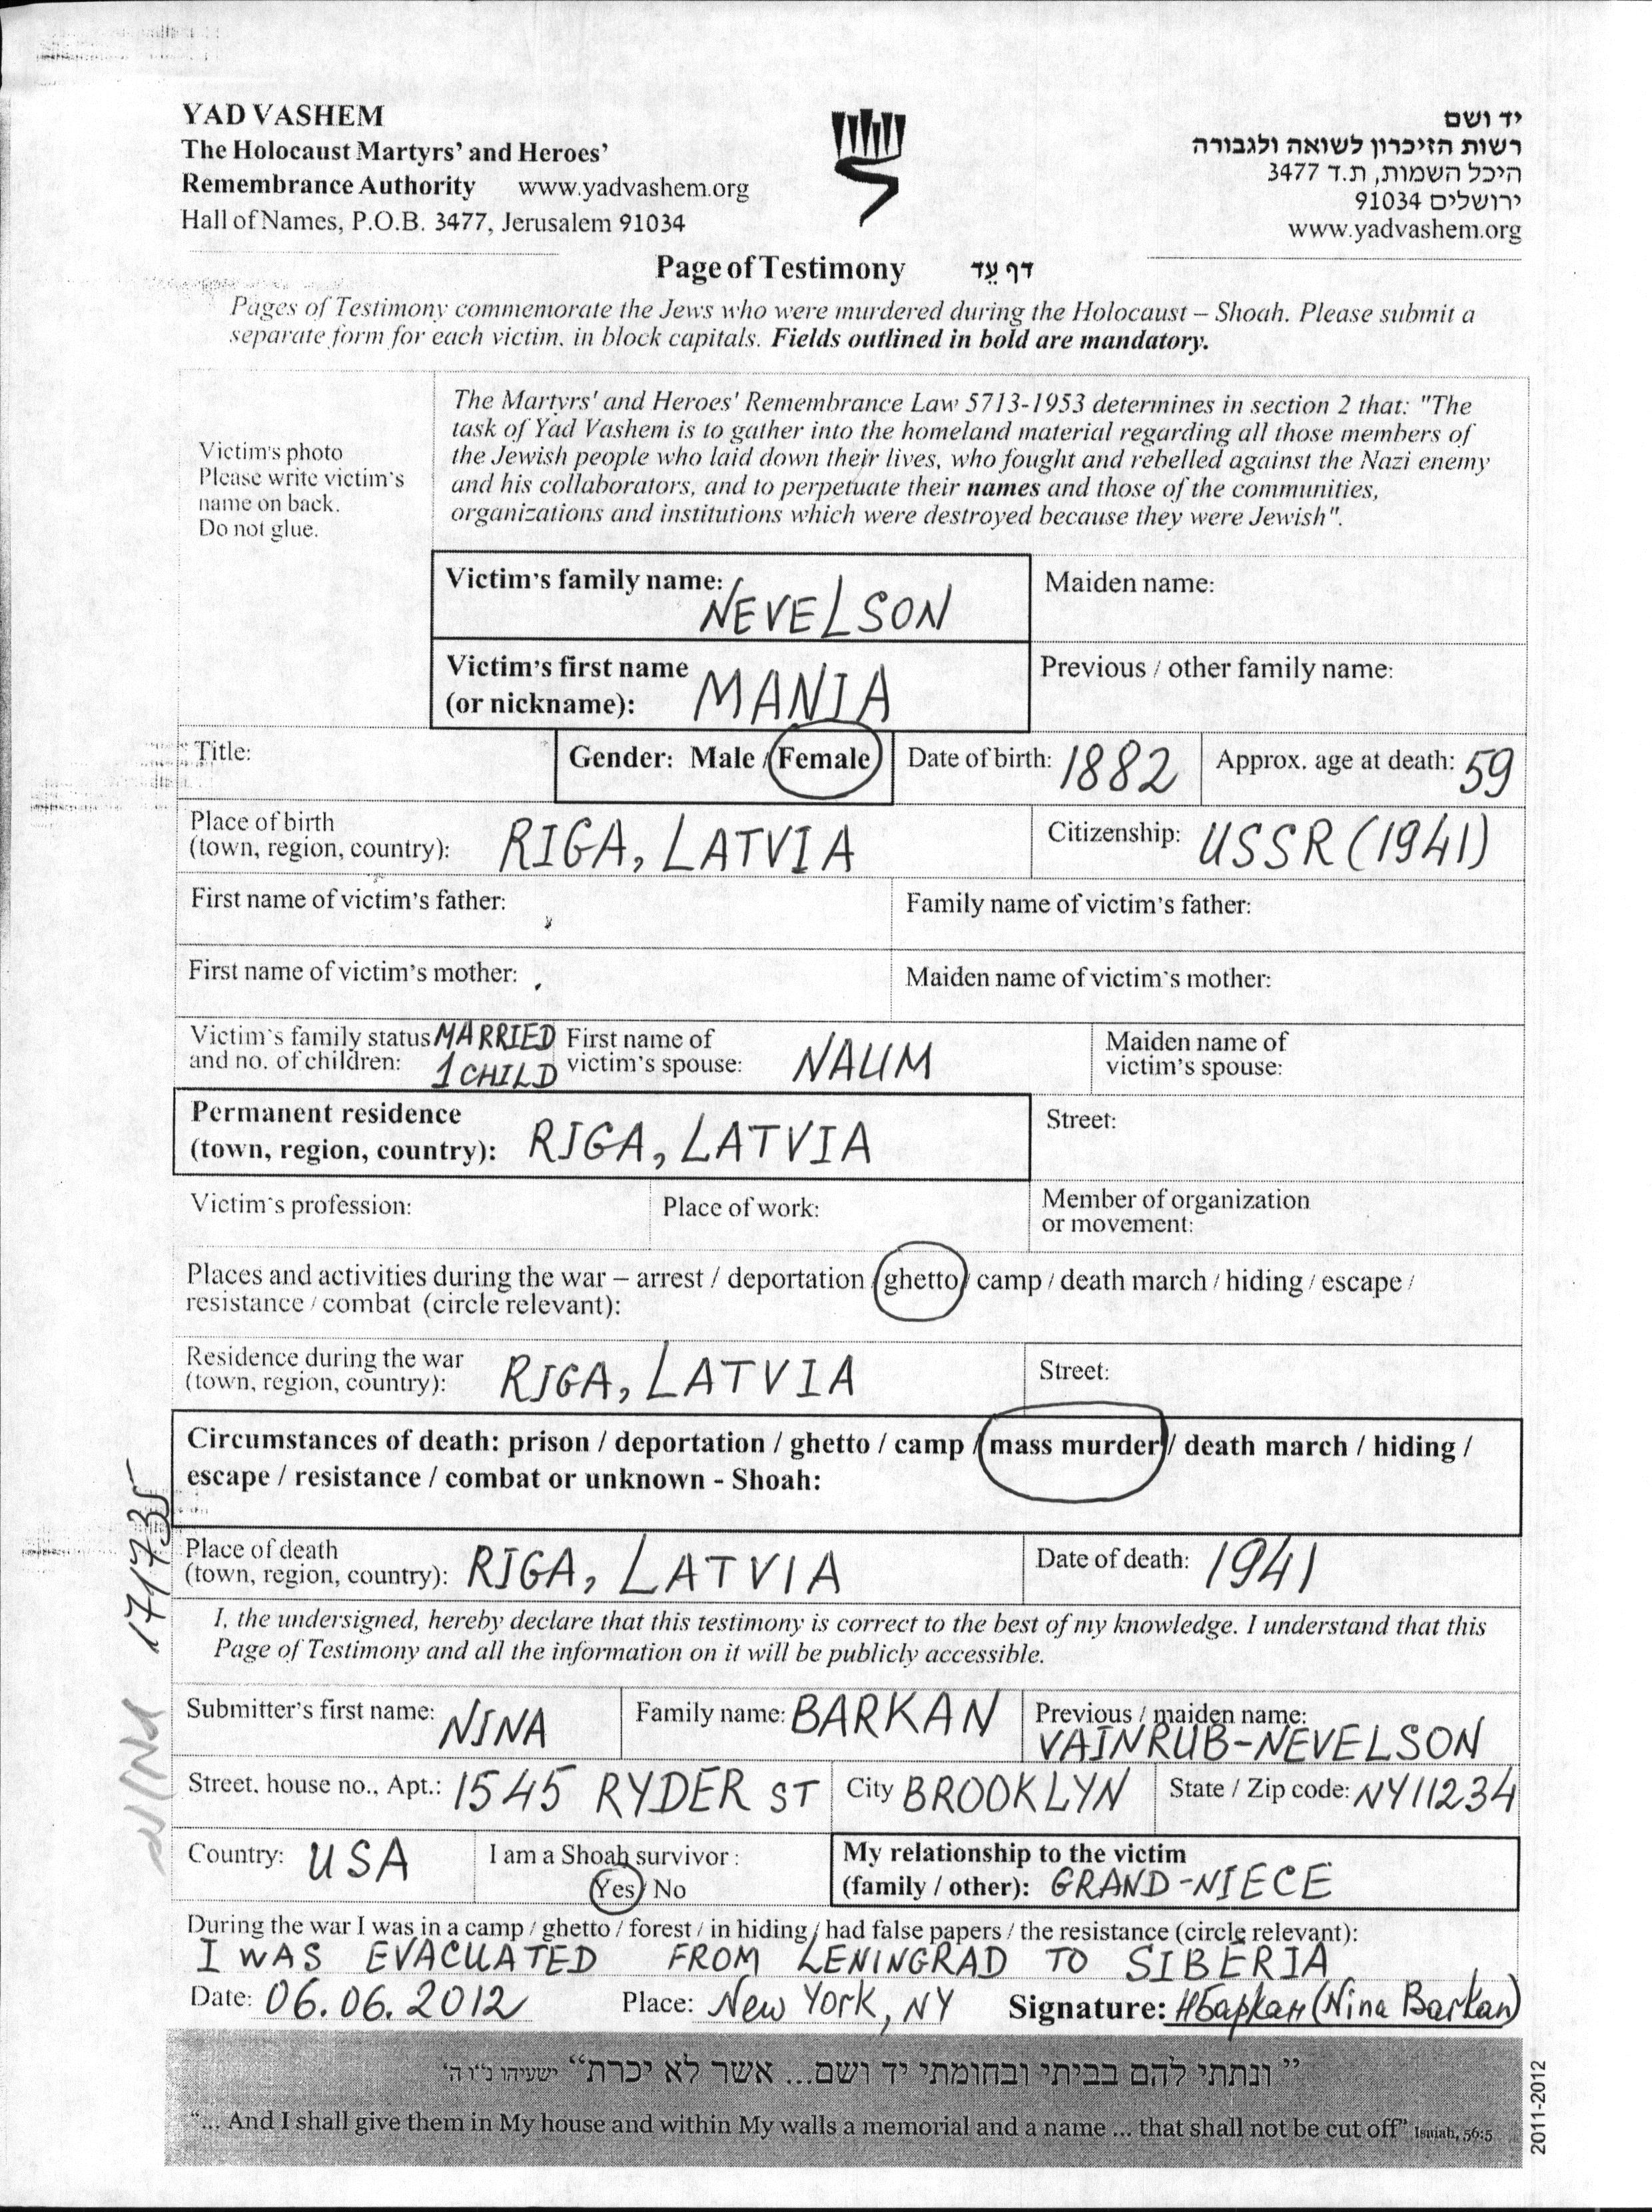 YAD VASHEM
The Holocaust Martyrs' and Heroes'
Remembrance Authority www.yadvashem.org
Hall of Names, P.O.B. 3477, Jerusalem 91034
יד ושם
רשות הזיכרון לשואה ולגבורה
היכל השמות, ת.ד 3477
ירושלים 91034
www.yadvashem.org
Page of Testimony דף עֵד
Pages of Testimony commemorate the Jews who were murdered during the Holocaust – Shoah. Please submit a
separate form for each victim, in block capitals. Fields outlined in bold are mandatory.
Victim's photo
Please write victim's
name on back.
Do not glue.
The Martyrs' and Heroes' Remembrance Law 5713-1953 determines in section 2 that: "The
task of Yad Vashem is to gather into the homeland material regarding all those members of
the Jewish people who laid down their lives, who fought and rebelled against the Nazi enemy
and his collaborators, and to perpetuate their names and those of the communities,
organizations and institutions which were destroyed because they were Jewish".
Victim's family name: NEVELSON
Maiden name:
Victim's first name
(or nickname): MANIA
Previous / other family name:
Title:
Gender: Male / Female
Date of birth: 1882
Approx. age at death: 59
Place of birth
(town, region, country): RIGA, LATVIA
Citizenship: USSR (1941)
First name of victim's father:
Family name of victim's father:
First name of victim's mother:
Maiden name of victim's mother:
Victim's family status MARRIED
and no. of children: 1 CHILD
First name of
victim's spouse: NAUM
Maiden name of
victim's spouse:
Permanent residence
(town, region, country): RIGA, LATVIA
Street:
Victim's profession:
Place of work:
Member of organization
or movement:
Places and activities during the war – arrest / deportation / ghetto / camp / death march / hiding / escape /
resistance / combat (circle relevant):
Residence during the war
(town, region, country): RIGA, LATVIA
Street:
Circumstances of death: prison / deportation / ghetto / camp / mass murder / death march / hiding /
escape / resistance / combat or unknown - Shoah:
Place of death
(town, region, country): RIGA, LATVIA
Date of death: 1941
I, the undersigned, hereby declare that this testimony is correct to the best of my knowledge. I understand that this
Page of Testimony and all the information on it will be publicly accessible.
Submitter's first name: NINA
Family name: BARKAN
Previous / maiden name:
VAINRUB-NEVELSON
Street, house no., Apt.: 1545 RYDER ST
City BROOKLYN
State / Zip code: NY11234
Country: USA
I am a Shoah survivor :
Yes / No
My relationship to the victim
(family / other): GRAND-NIECE
During the war I was in a camp / ghetto / forest / in hiding / had false papers / the resistance (circle relevant):
I WAS EVACUATED FROM LENINGRAD TO SIBERIA
Date: 06.06.2012 Place: New York, NY Signature: НБаркан (Nina Barkan)
"ונתתי להם בביתי ובחומתי יד ושם... אשר לא יכרת" ישעיהו נ"ו ה'
"... And I shall give them in My house and within My walls a memorial and a name ... that shall not be cut off" Isaiah, 56:5
2011-2012
171735